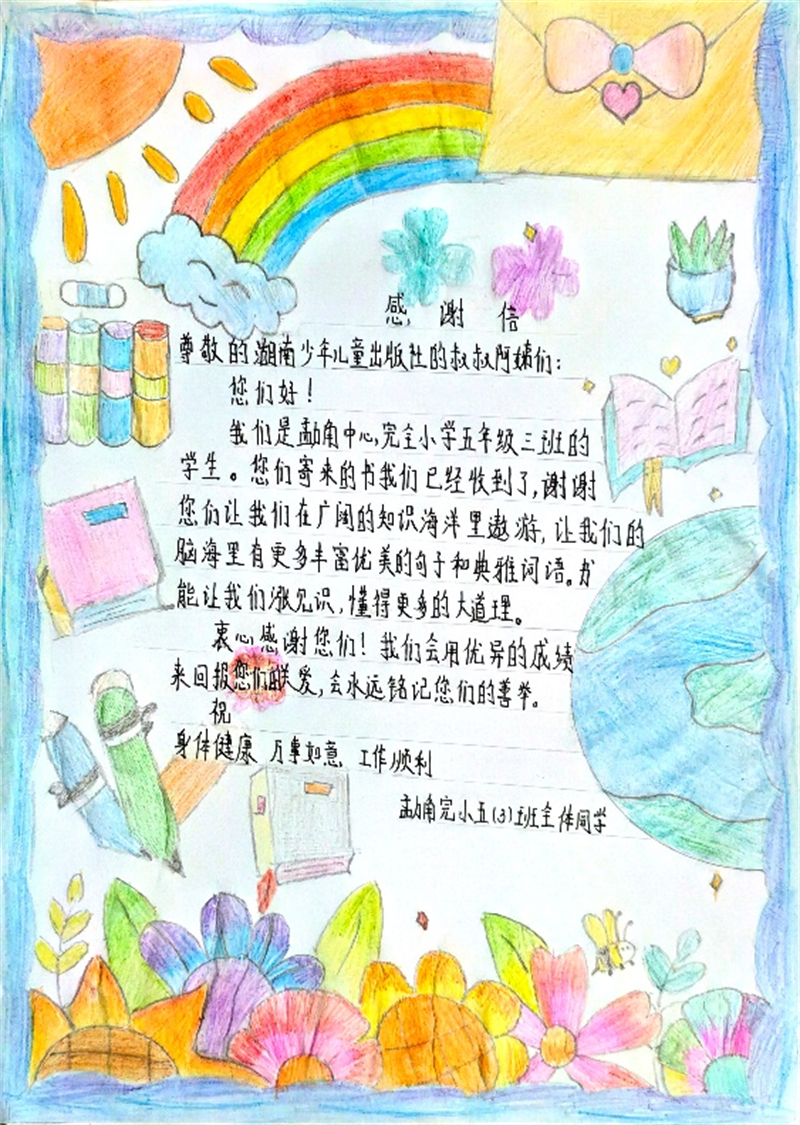 感谢信
尊敬的湖南少年儿童出版社的叔叔阿姨们：
您们好！
我们是勐角中心完全小学五年级三班的
学生。您们寄来的书我们已经收到了，谢谢
您们让我们在广阔的知识海洋里遨游，让我们的
脑海里有更多丰富优美的句子和典雅词语。才
能让我们涨见识，懂得更多的大道理。
衷心感谢您们！我们会用优异的成绩
来回报您们的关爱，会永远铭记您们的善举。
祝
身体健康 万事如意 工作顺利
勐角完小五(3)班全体同学